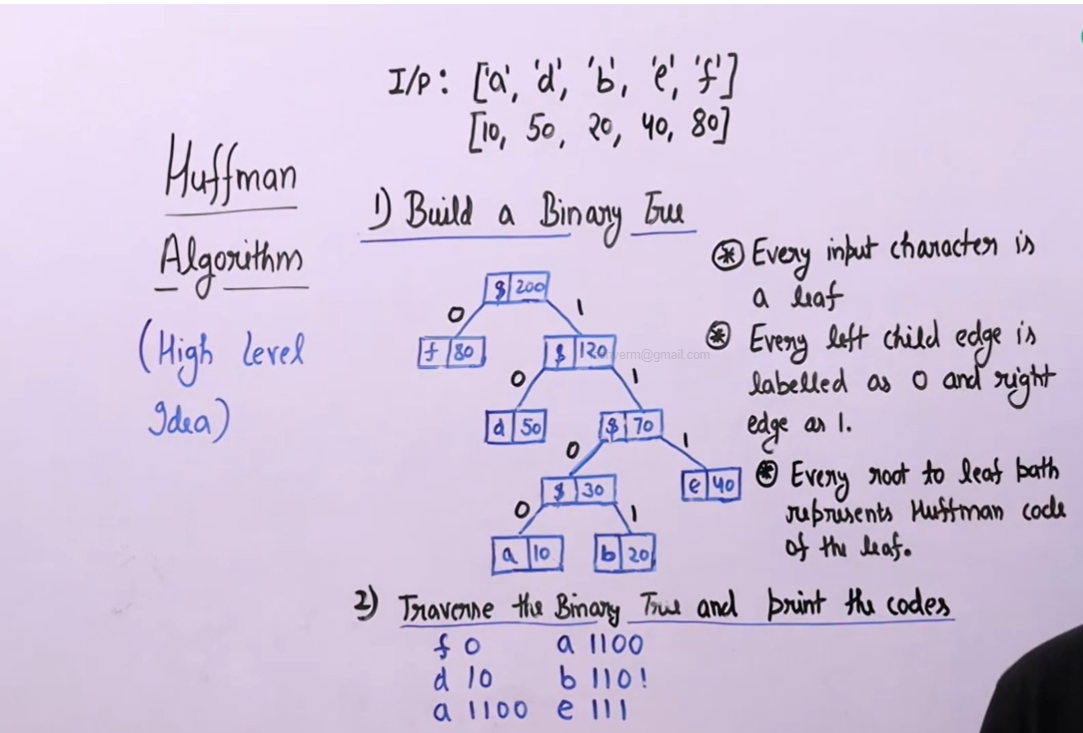 I/P: ['a', 'd', 'b', 'e', 'f']
[10, 50, 20, 40, 80]
Huffman
Algorithm
(High Level
Idea)
1) Build a Binary Tree
$ 200
0 1
f 80
$ 120
0 1
d 50
$ 70
0 1
$ 30
e 40
0 1
a 10
b 20
* Every input character is
a leaf
* Every left child edge is
labelled as 0 and right
edge as 1.
* Every root to leaf path
represents Huffman code
of the leaf.
2) Traverse the Binary Tree and print the codes
f 0 a 1100
d 10 b 110!
a 1100 e 111